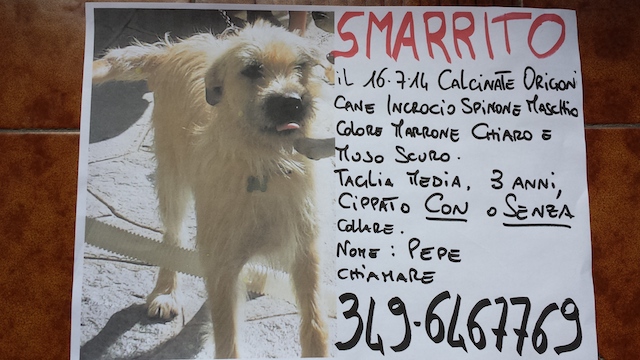 SMARRITO
il 16.7.14 CALCINATE ORIGONI
CANE INCROCIO SPINONE MASCHIO
COLORE MARRONE CHIARO E
MUSO SCURO.
TAGLIA MEDIA, 3 ANNI,
CIPPATO CON O SENZA
COLLARE.
NOME : PEPE
CHIAMARE
349-6467769